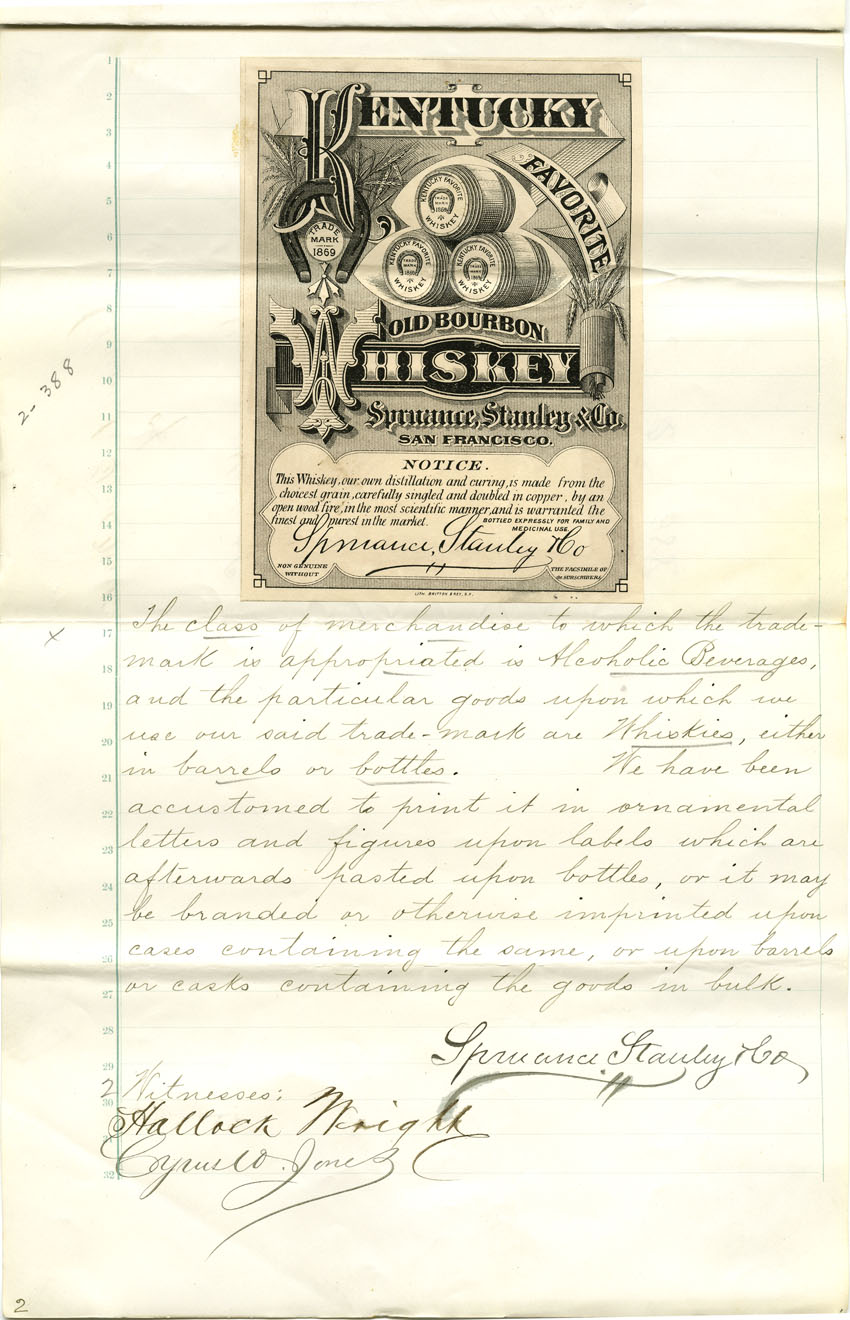 KENTUCKY
FAVORITE
KENTUCKY FAVORITE
TRADE
MARK
1869
WHISKEY
TRADE
MARK
1869
KENTUCKY FAVORITE
TRADE
MARK
1869
WHISKEY
KENTUCKY FAVORITE
TRADE
MARK
1869
WHISKEY
OLD BOURBON
WHISKEY
Spruance, Stanley & Co.
SAN FRANCISCO.
NOTICE.
This Whiskey, our own distillation and curing, is made from the
choicest grain, carefully singled and doubled in copper, by an
open wood fire, in the most scientific manner, and is warranted the
finest and purest in the market.
BOTTLED EXPRESSLY FOR FAMILY AND
MEDICINAL USE.
Spruance, Stanley & Co
NON GENUINE
WITHOUT
THE FACSIMILE OF
the SUBSCRIBERS
LITH. BRITTON & REY, S.F.
1
2
3
4
5
6
7
8
9
10
11
12
13
14
15
16
2-388
x
17 The class of merchandise to which the trade-
18 mark is appropriated is Alcoholic Beverages,
19 and the particular goods upon which we
20 use our said trade-mark are Whiskies, either
21 in barrels or bottles. We have been
22 accustomed to print it in ornamental
23 letters and figures upon labels which are
24 afterwards pasted upon bottles, or it may
25 be branded or otherwise imprinted upon
26 cases containing the same, or upon barrels
27 or casks containing the goods in bulk.
28
Spruance, Stanley & Co
29
2 Witnesses:
30
Hallock Wright
Cyrus W. Jones
32
2